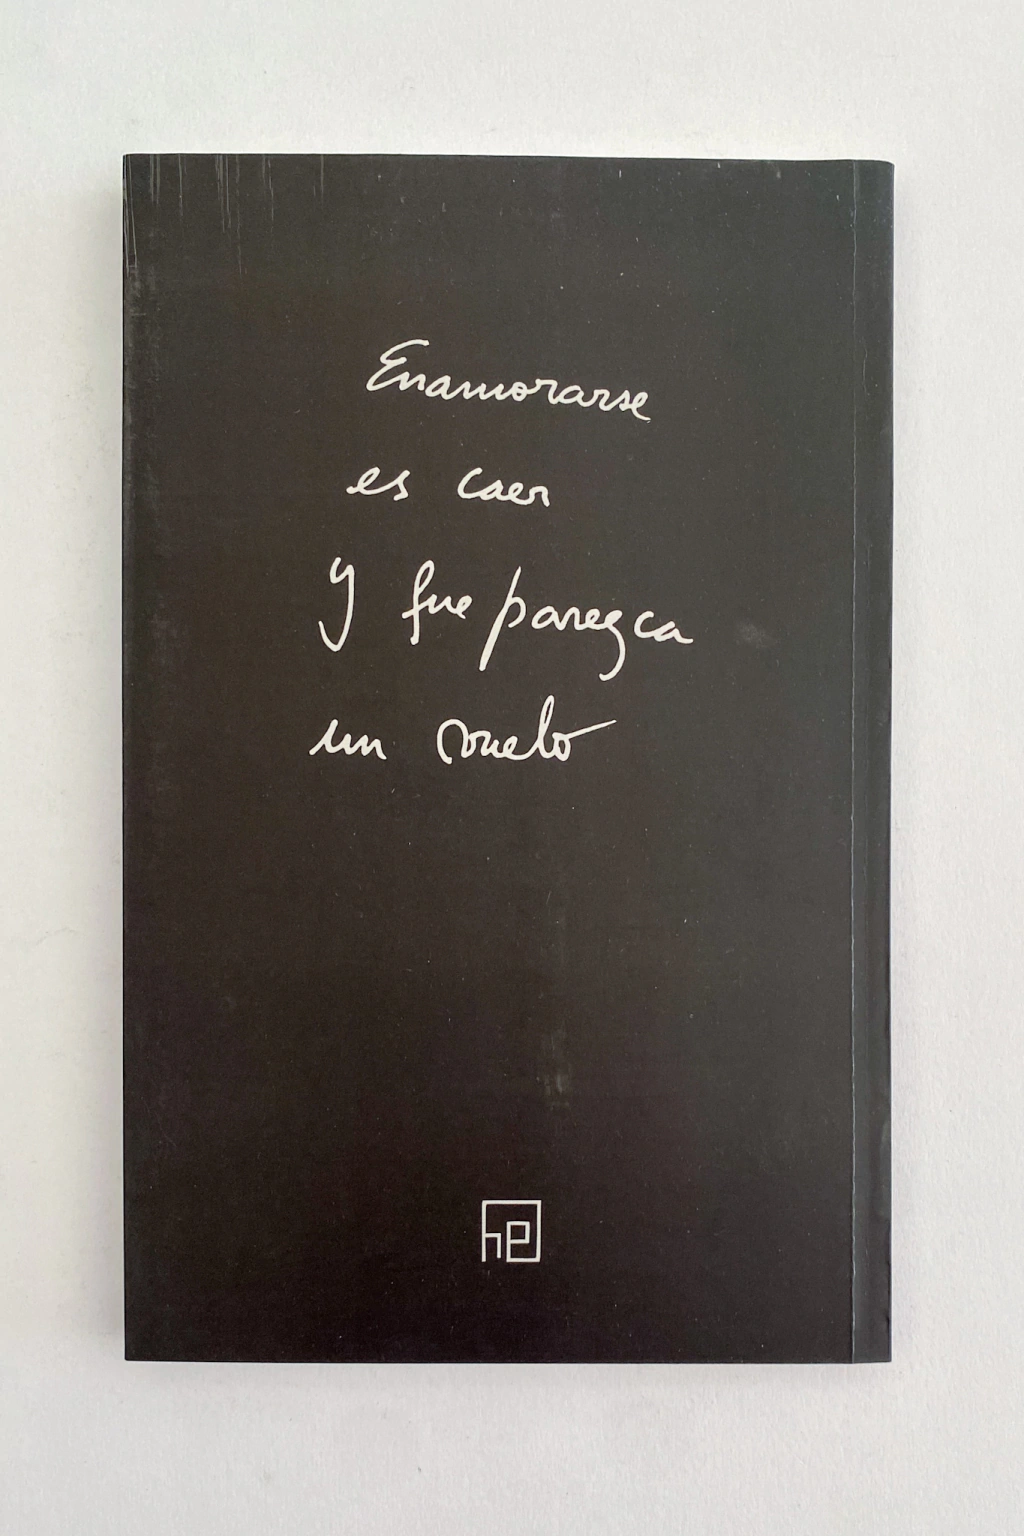 Enamorarse
es caer
y que parezca
un vuelo
he